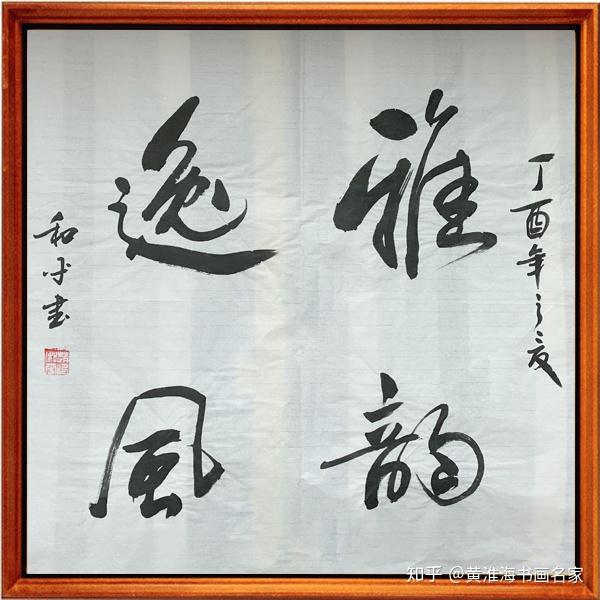 丁酉年之夏
雅韵
逸風
和平書
知乎 @黄淮海书画名家